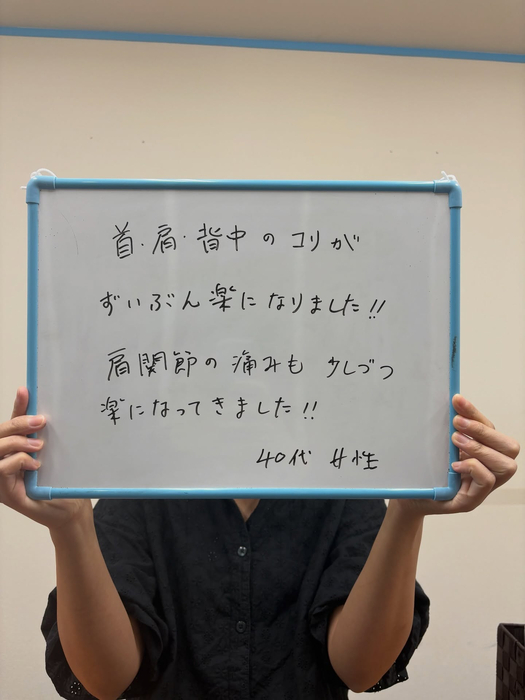 首・肩・背中のコリが
ずいぶん楽になりました!!
肩関節の痛みも少しづつ
楽になってきました!!
40代 女性